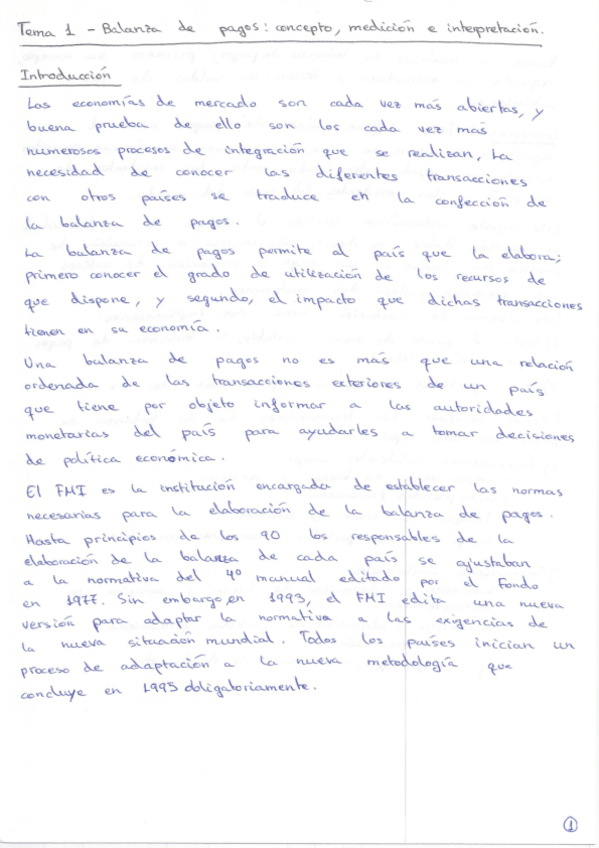 Tema 1 - Balanza de pagos: concepto, medición e interpretación.
Introducción
Las economías de mercado son cada vez más abiertas, y
buena prueba de ello son los cada vez mas
numerosos procesos de integración que se realizan, La
necesidad de conocer las diferentes transacciones
con otros países se traduce en la confección de
la balanza de pagos.
La balanza de pagos permite al país que la elabora;
primero conocer el grado de utilización de los recursos de
que dispone, y segundo, el impacto que dichas transacciones
tienen en su economía.
Una balanza de pagos no es más que una relación
ordenada de las transacciones exteriores de un país
que tiene por objeto informar a las autoridades
monetarias del país para ayudarles a tomar decisiones
de política económica.
El FMI es la institución encargada de establecer las normas
necesarias para la elaboración de la balanza de pagos.
Hasta principios de los 90 los responsables de la
elaboración de la balanza de cada país se ajustaban
a la normativa del 4º manual editado por el Fondo
en 1977. Sin embargo, en 1993, el FMI edita una nueva
versión para adaptar la normativa a las exigencias de
la nueva situación mundial. Todos los países inician un
proceso de adaptación a la nueva metodología que
concluye en 1995 obligatoriamente.
1